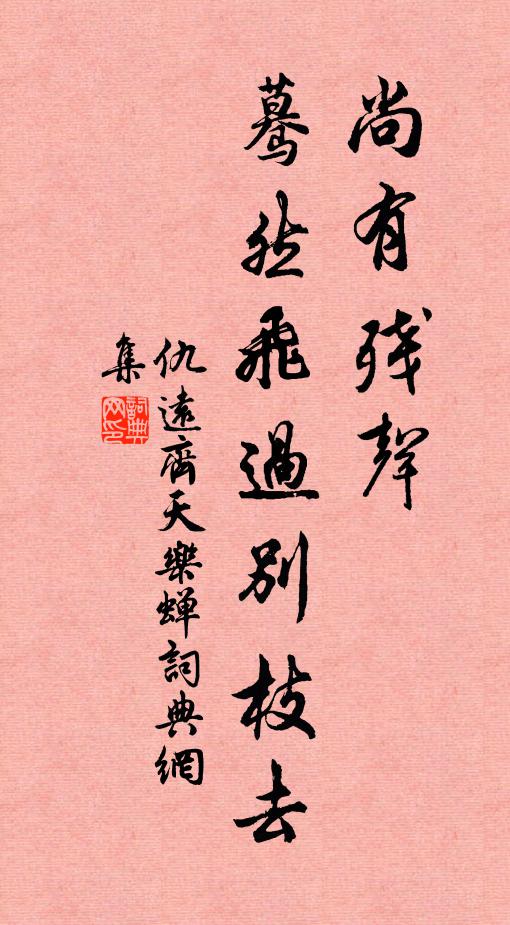 尚有残聲
驀然飛過別枝去
仇遠齊天樂蝉詞典網
集
詞典网印